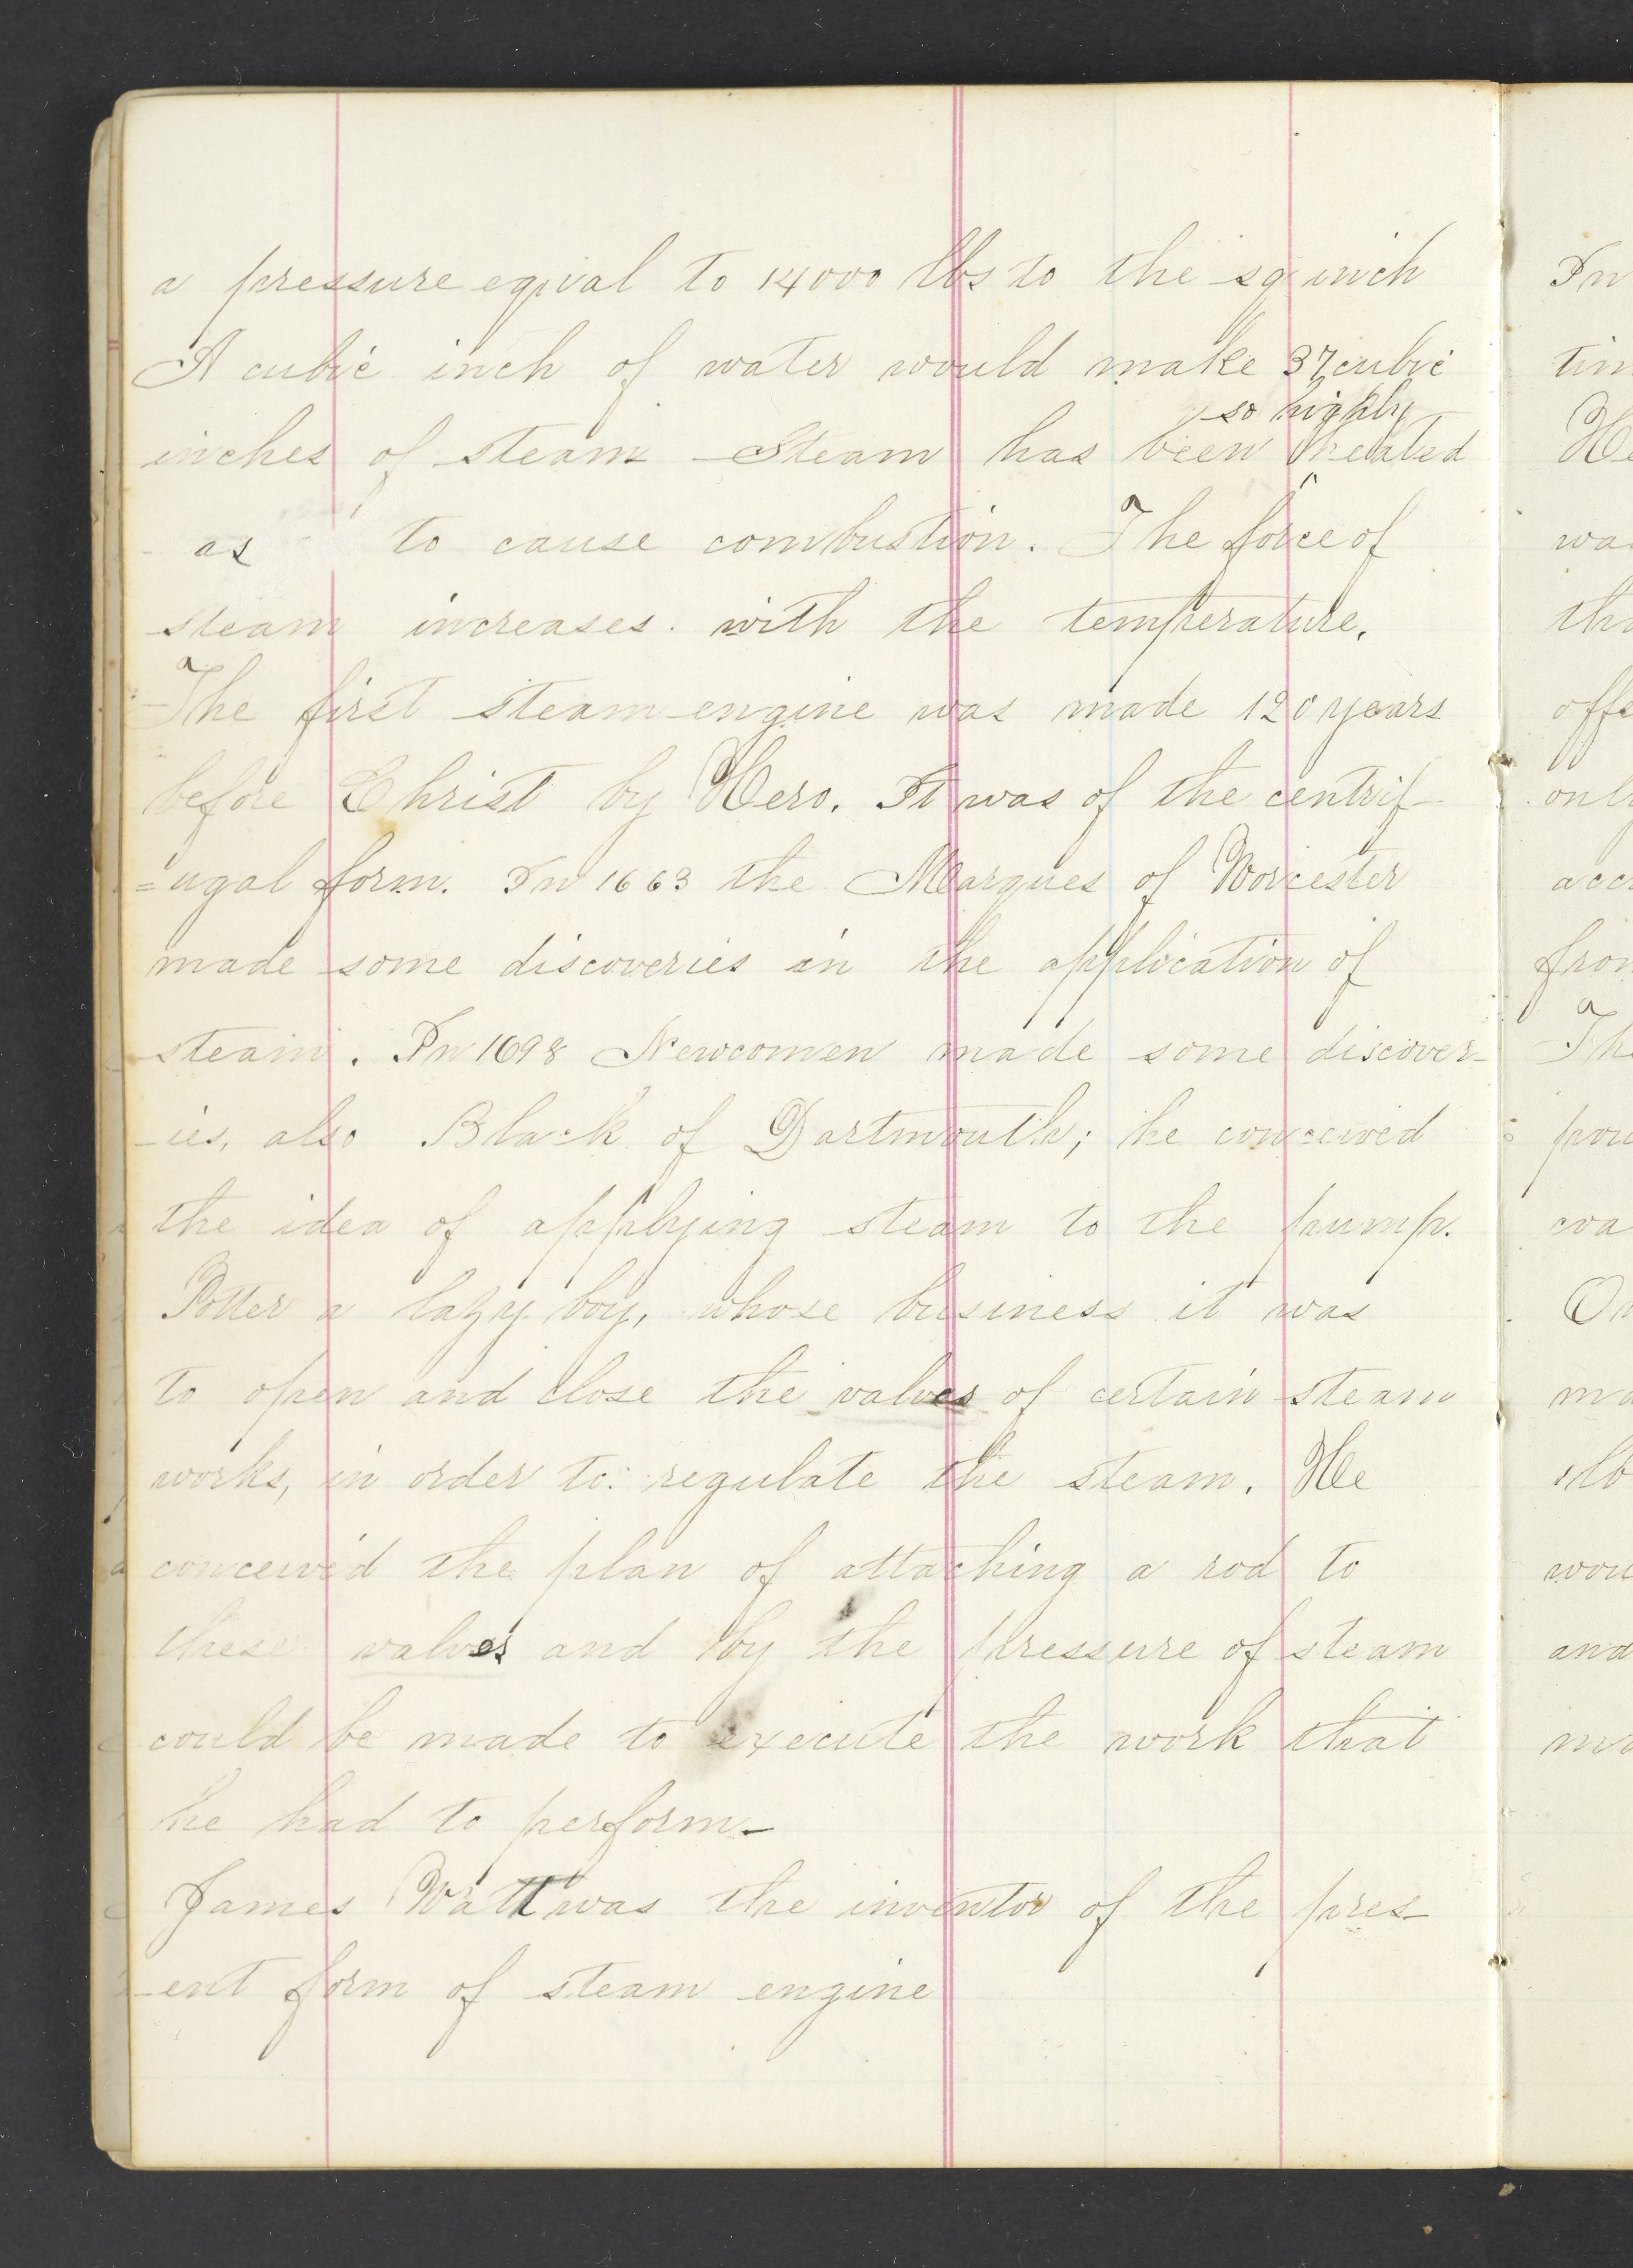 a pressure eqival to 14000 lbs to the sq inch
A cubic inch of water would make 37 cubic
so highly
inches of steam Steam has been heated
as to cause combustion. The force of
steam increases with the temperature.
The first steam engine was made 120 years
before Christ by Hero. It was of the centrif-
=ugal form. In 1663 the Marques of Worcester
made some discoveries in the application of
steam. In 1698 Newcomen made some discover-
-ies, also Black of Dartmouth; he conceived
the idea of applying steam to the pump.
Potter a lazy boy, whose business it was
to open and close the valves of certain steam
works, in order to regulate the steam. He
conceived the plan of attaching a rod to
these valves and by the pressure of steam
could be made to execute the work that
he had to perform-
James Watt was the inventor of the pres-
-ent form of steam engine